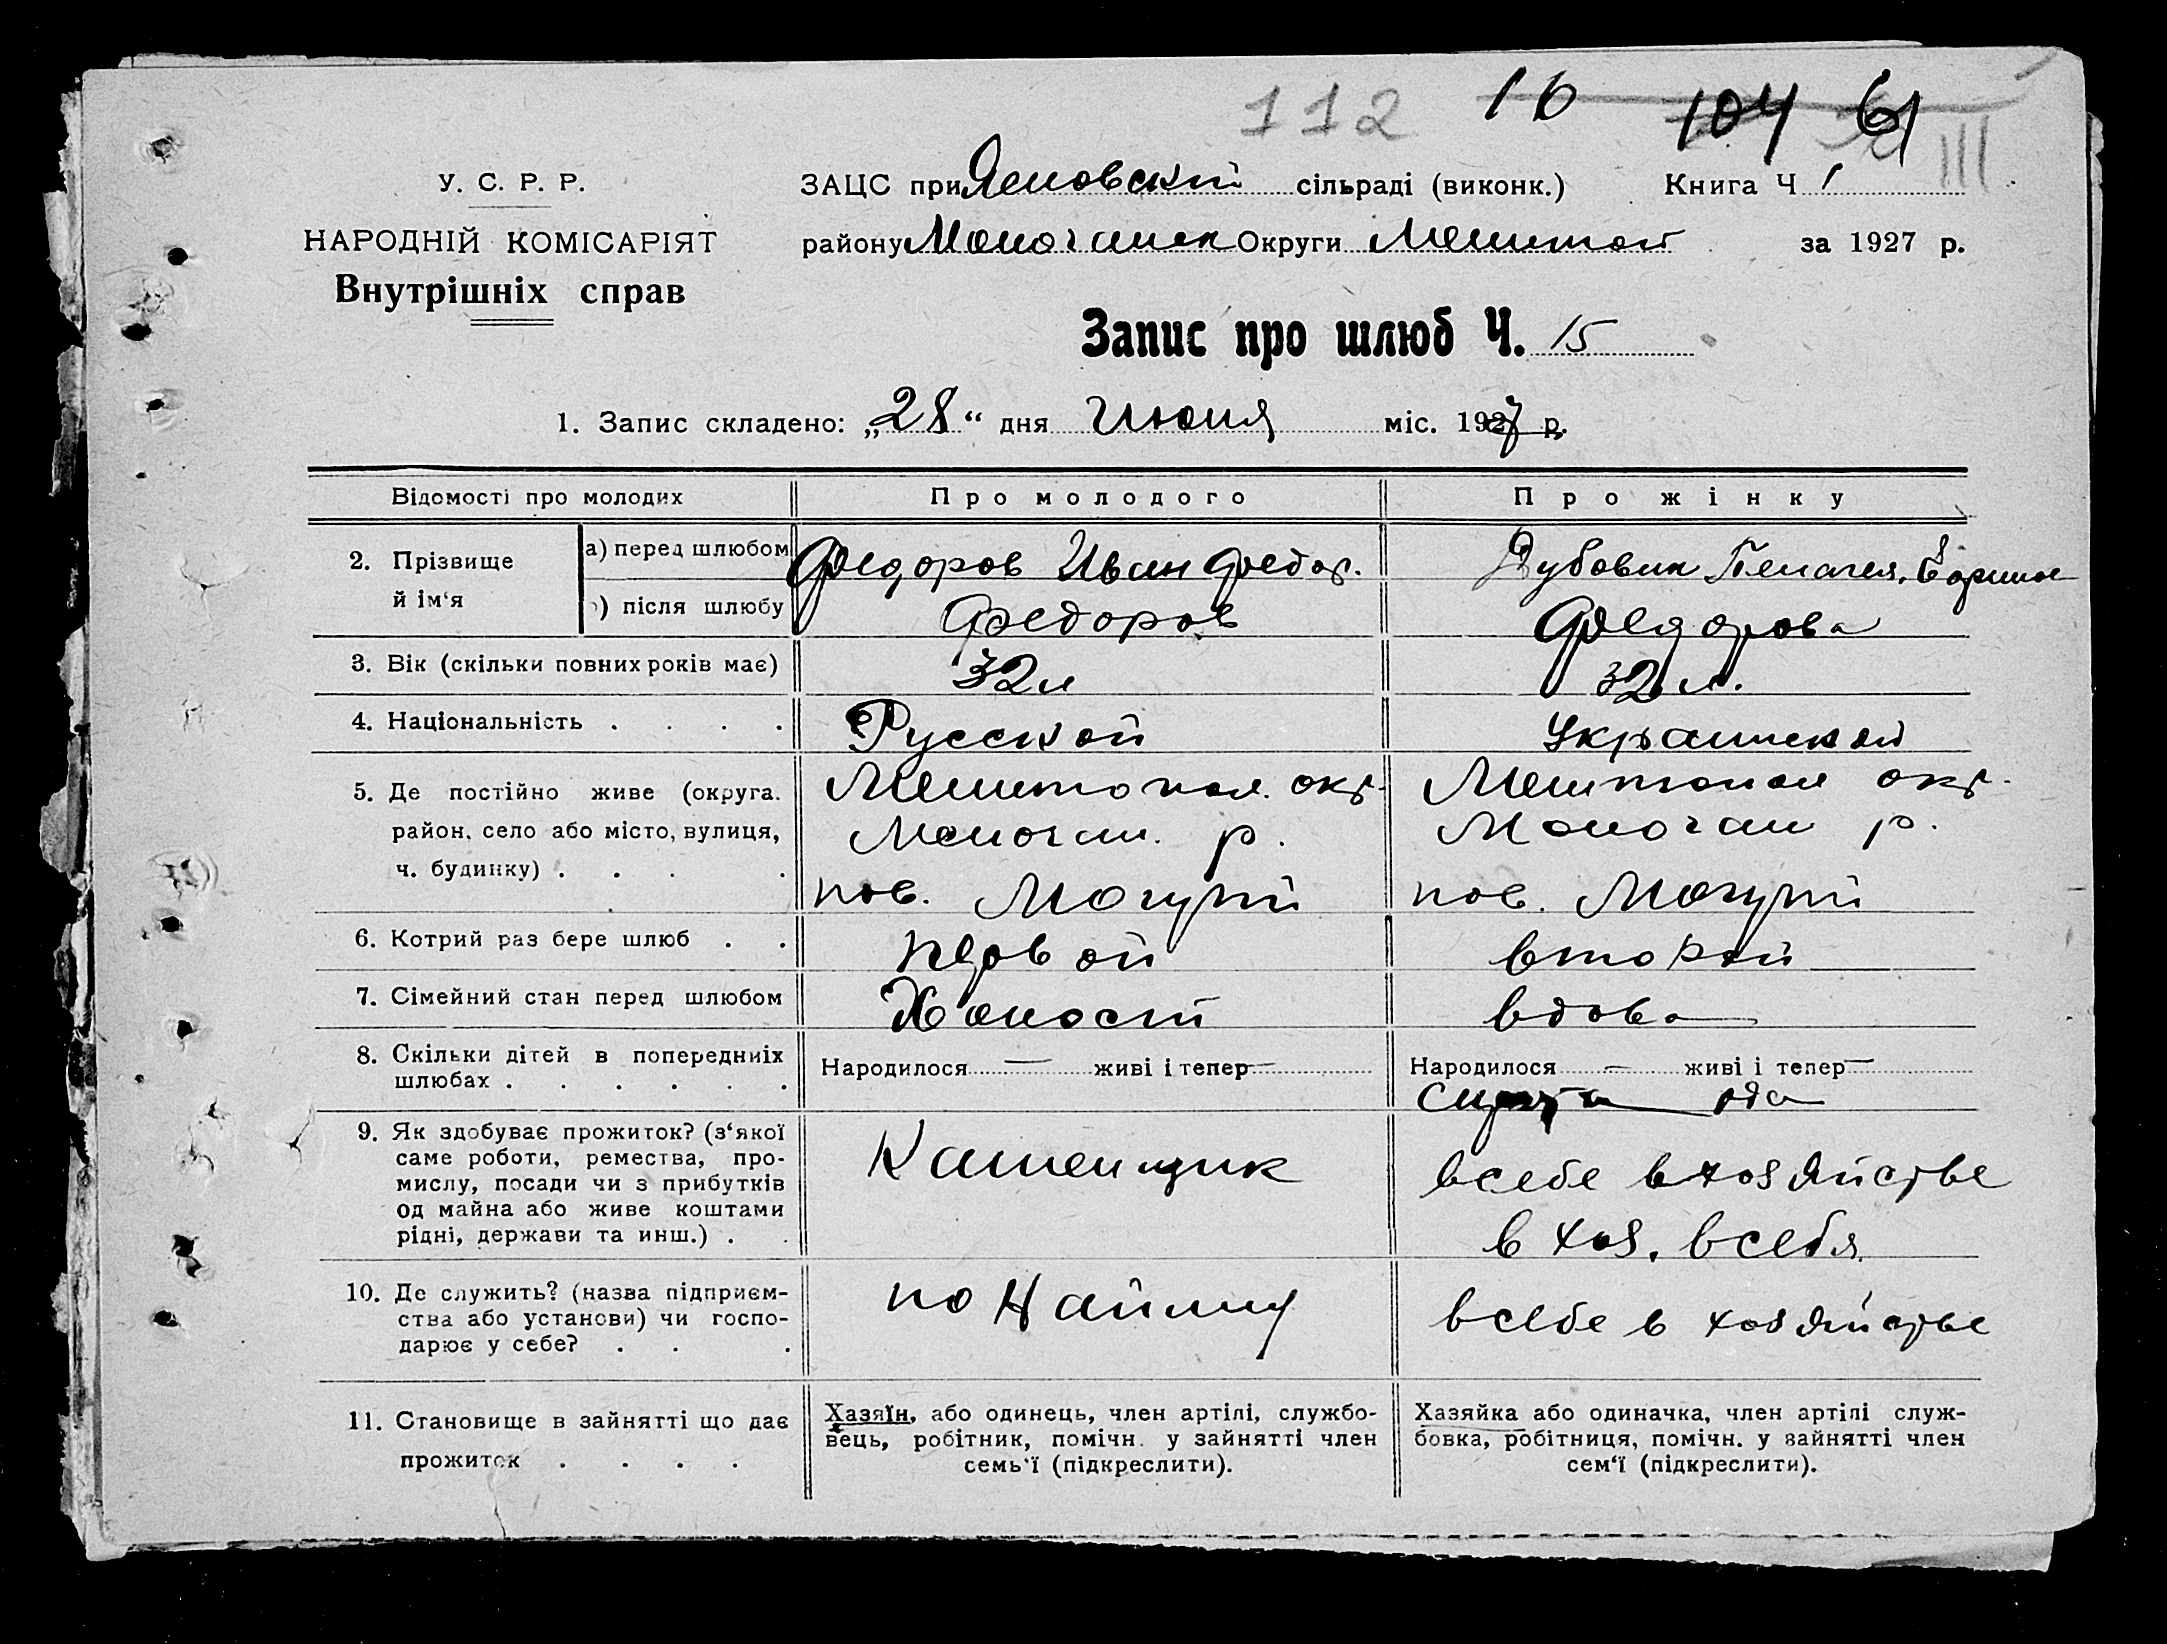 112 16 104 61
III
У. С. Р. Р.
НАРОДНІЙ КОМІСАРІЯТ
Внутрішніх справ
ЗАЦС при сільраді (виконк.) Книга Ч 1
району Округи за 1927 р.
Запис про шлюб Ч. 15
1. Запис складено: „28“ дня Июня міс. 1927 р.
Відомості про молодих
Про молодого
Про жінку
2. Прізвище й ім‘я
а) перед шлюбом
Федоров Иван Федор.
Дубовик Пелагея,
) після шлюбу
Федоров
Федорова
3. Вік (скільки повних років має)
32 л
32 л.
4. Національність . . . .
Русской
Украинской
5. Де постійно живе (округа.
район, село або місто, вулиця,
ч. будинку) . . . .
Мелитопол. окр.
р.
пос.
Мелитопол окр.
р.
пос.
6. Котрий раз бере шлюб . .
первой
второй
7. Сімейний стан перед шлюбом
Холостй
вдова
8. Скільки дітей в попередниіх
шлюбах . . . . . .
Народилося — живі і тепер —
Народилося — живі і тепер —
9. Як здобуває прожиток? (з‘якої
саме роботи, ремества, про-
мислу, посади чи з прибутків
од майна або живе коштами
рідні, держави та инш.) . .
Каменщик
всебе вхозяйстве
в хоз. всебя.
10. Де служить? (назва підприєм-
ства або установи) чи госпо-
дарює у себе? . . .
по Найму
всебе в хозяйстве
11. Становище в зайнятті що дає
прожиток . . . .
Хазяїн, або одинець, член артілі, службо-
вець, робітник, помічн. у зайнятті член
семь‘ї (підкреслити).
Хазяйка або одиначка, член артілі служ-
бовка, робітниця, помічн. у зайнятті член
сем‘ї (підкреслити).